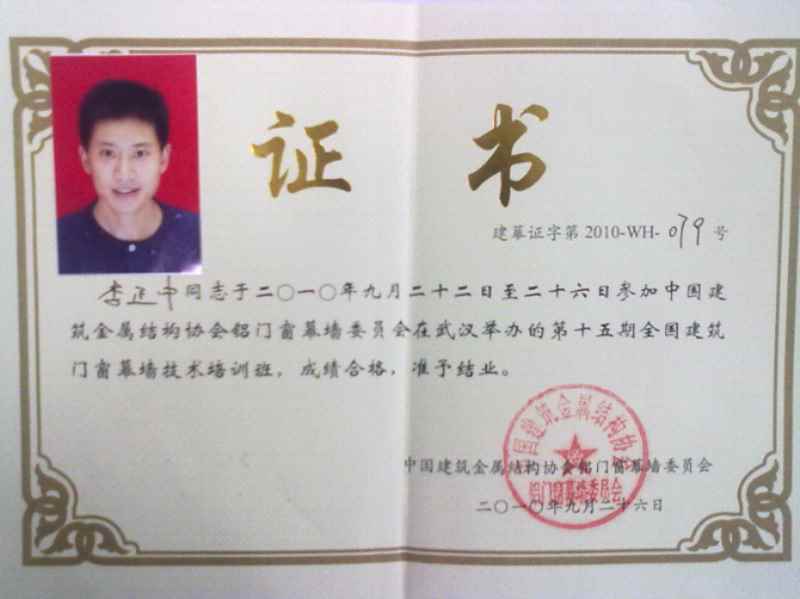 证书
建幕证字第 2010-WH-079 号
李正中同志于二〇一〇年九月二十二日至二十六日参加中国建
筑金属结构协会铝门窗幕墙委员会在武汉举办的第十五期全国建筑
门窗幕墙技术培训班，成绩合格，准予结业。
中国建筑金属结构协会铝门窗幕墙委员会
二〇一〇年九月二十六日
中国建筑金属结构协会
铝门窗幕墙委员会